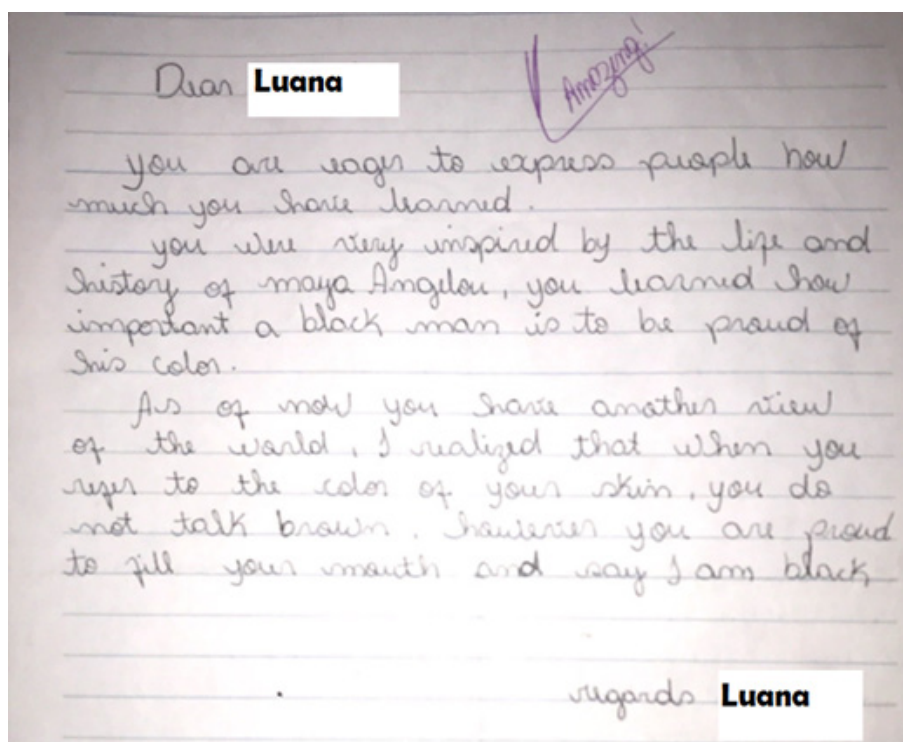 Amazing!
Dear Luana
you are eager to express people how
much you have learned.
you were very inspired by the life and
history of maya Angelou, you learned how
important a black man is to be proud of
his color.
As of now you have another view
of the world. I realized that when you
refer to the color of your skin, you do
not talk brown. however you are proud
to fill your mouth and say I am black
regards Luana